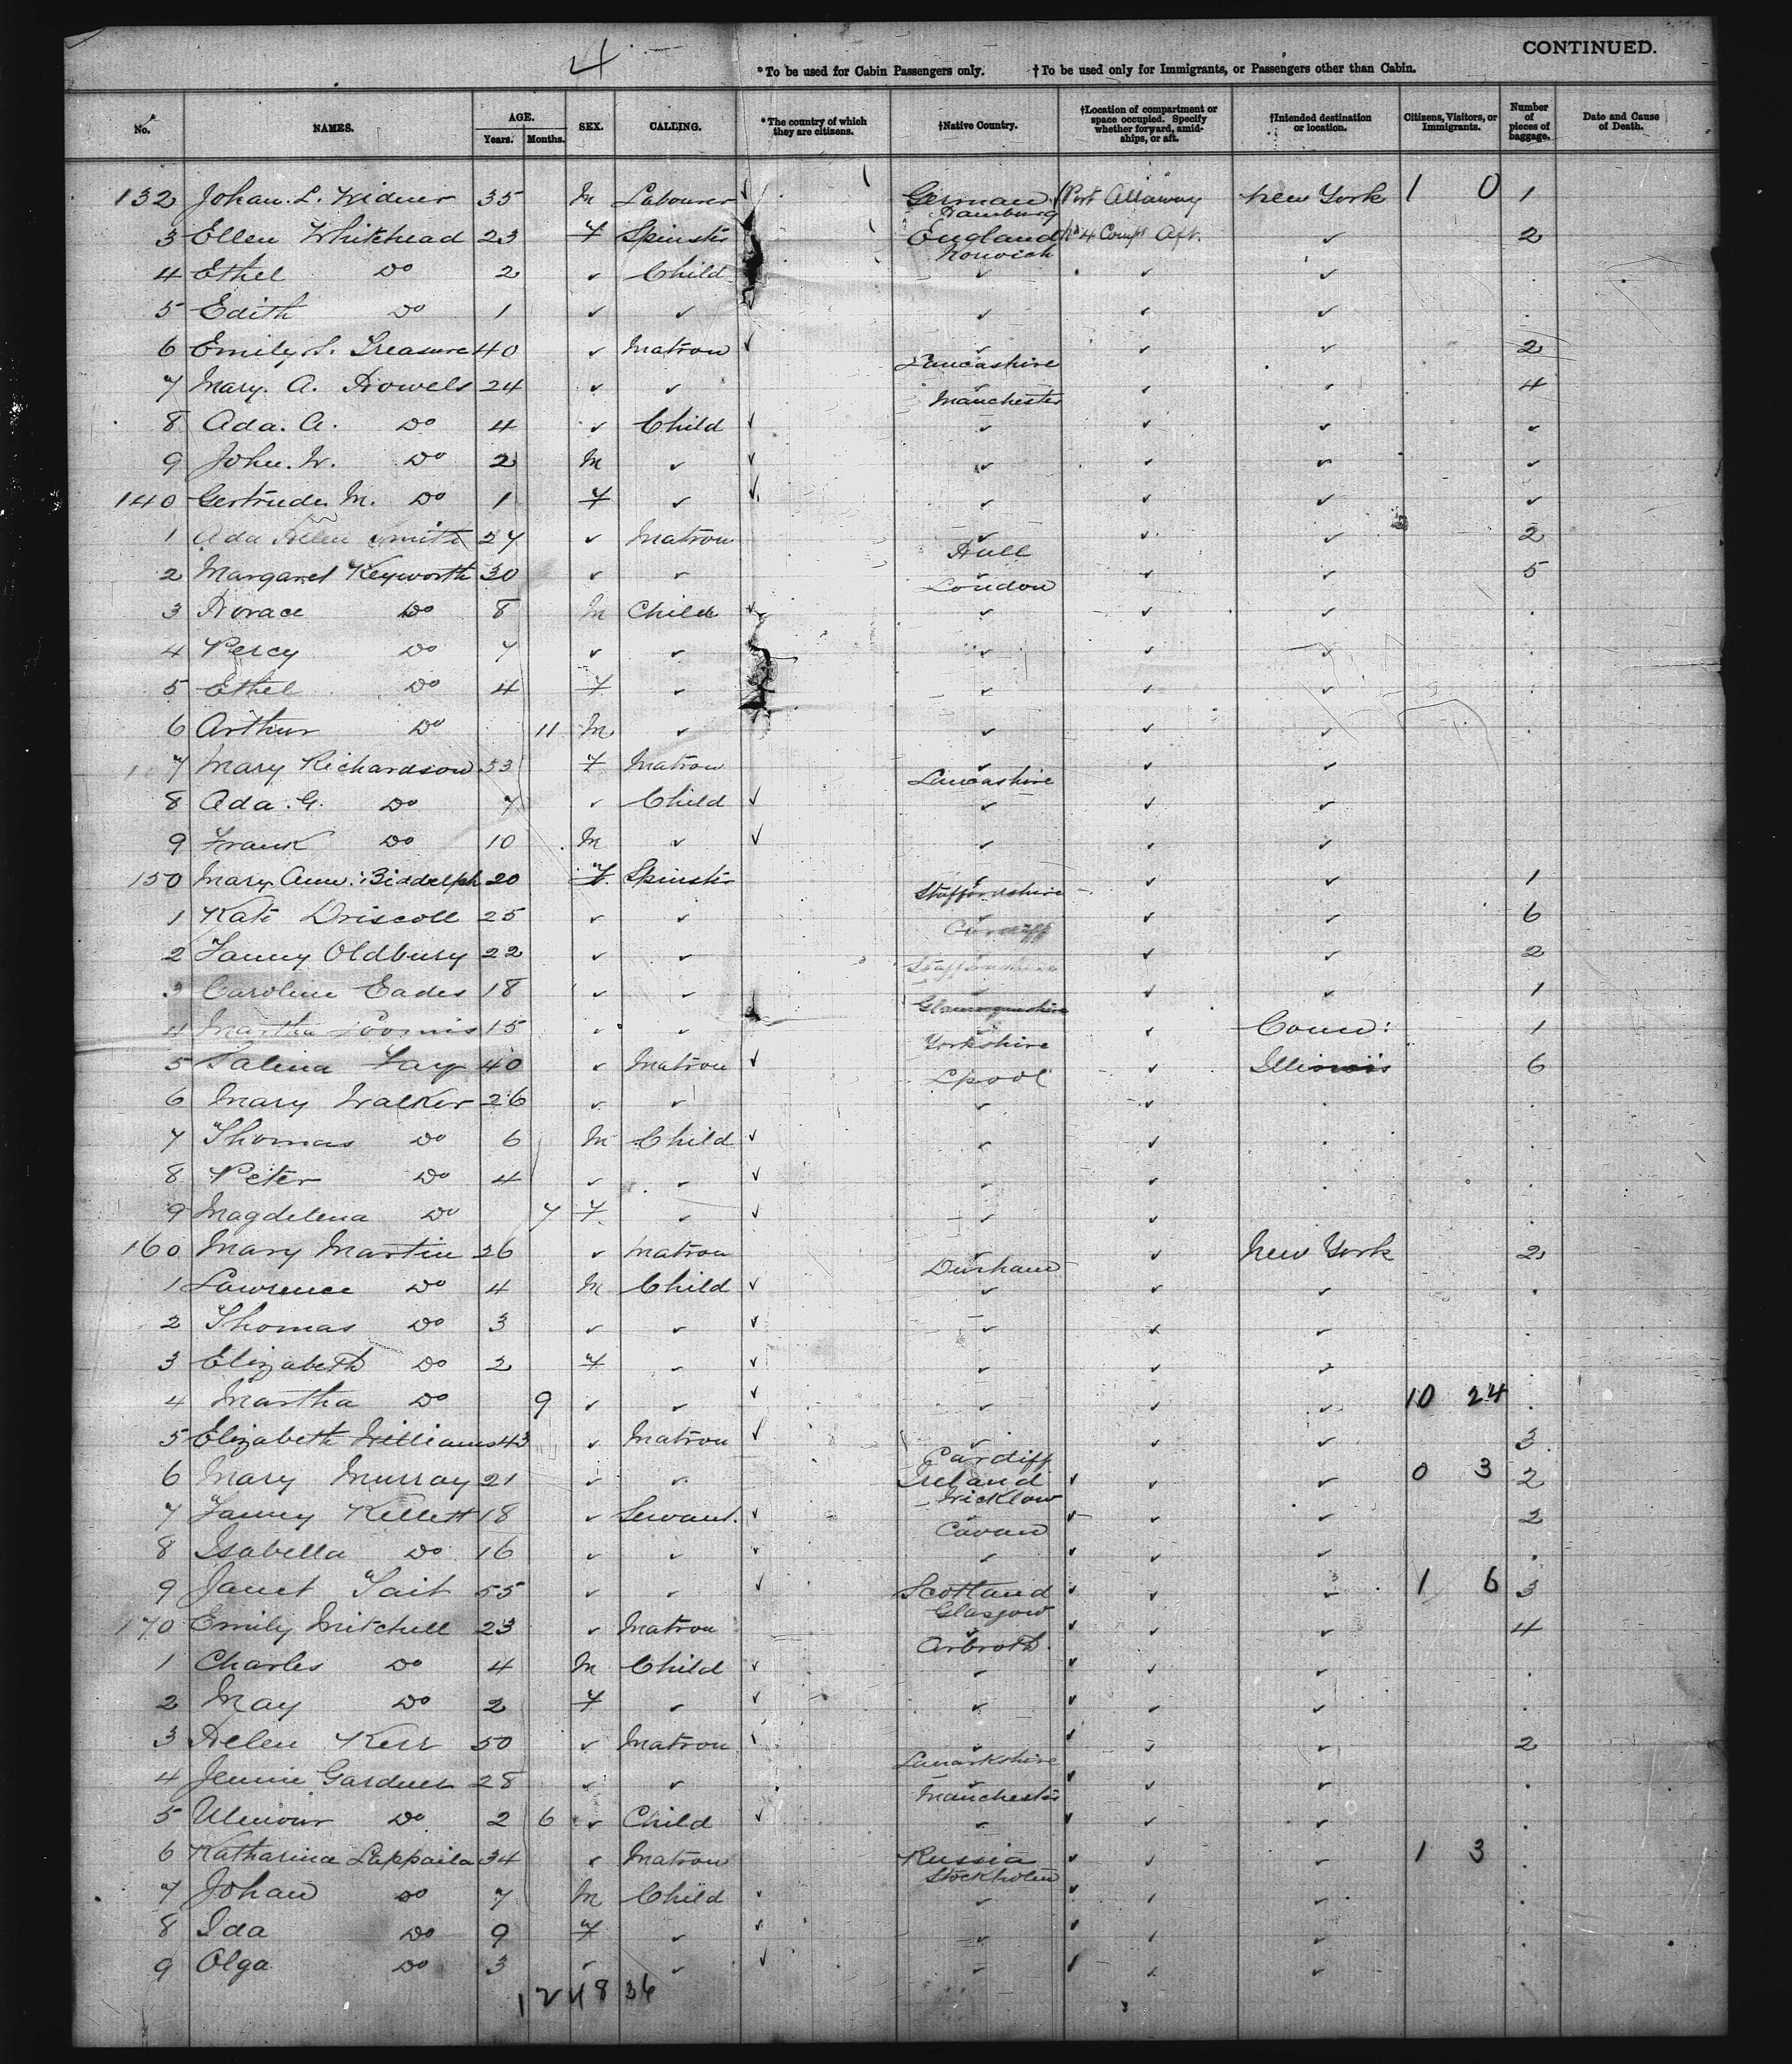 4
CONTINUED.
*To be used for Cabin Passengers only. †To be used only for Immigrants, or Passengers other than Cabin.
No. NAMES. AGE. Years. Months. SEX. CALLING. *The country of which they are citizens. †Native Country. †Location of compartment or space occupied. Specify whether forward, amidships, or aft. †Intended destination or location. Citizens, Visitors, or Immigrants. Number of pieces of baggage. Date and Cause of Death.
132 Johan. L. Widner 35 M Labourer ✓ German Hamburg Port Allaway New York 1 0 1
3 Ellen Whitehead 23 F Spinster England Norwich No 4 Compt Aft. ✓ 2
4 Ethel Do 2 ✓ Child ✓ ✓ ✓
5 Edith Do 1 ✓ ✓ ✓ ✓ ✓ ✓
6 Emily S. Treasure 40 ✓ Matron ✓ ✓ Lancashire ✓ ✓ 2
7 Mary. A. Howels 24 ✓ ✓ ✓ Manchester ✓ ✓ 4
8 Ada. A. Do 4 ✓ Child ✓ ✓ ✓ ✓ ✓
9 John. W. Do 2 M ✓ ✓ ✓ ✓ ✓ ✓
140 Gertrude. M. Do 1 F ✓ ✓ ✓ ✓ ✓ ✓
1 Ada Helen Smith 27 ✓ Matron ✓ Hull ✓ ✓ 2
2 Margaret Keyworth 30 ✓ ✓ ✓ London ✓ ✓ 5
3 Horace Do 8 M Child ✓ ✓ ✓ ✓
4 Percy Do 7 ✓ ✓ ✓ ✓ ✓
5 Ethel Do 4 F ✓ ✓ ✓ ✓
6 Arthur Do 11 M ✓ ✓ ✓ ✓
7 Mary Richardson 33 F Matron ✓ Lancashire ✓ ✓
8 Ada. G. Do 7 ✓ Child ✓ ✓ ✓ ✓
9 Frank Do 10 M ✓ ✓ ✓ ✓ ✓
150 Mary Ann. Biddelph 20 F Spinster ✓ Staffordshire ✓ ✓ 1
1 Kate Driscoll 25 ✓ ✓ ✓ Cardiff ✓ ✓ 6
2 Fanny Oldbury 22 ✓ ✓ ✓ Staffordshire ✓ ✓ 2
3 Caroline Eades 18 ✓ ✓ ✓ Glamorganshire ✓ ✓ 1
4 Martha 15 ✓ ✓ ✓ Yorkshire ✓ Conn: 1
5 Salina Fay 40 ✓ Matron ✓ Lpool ✓ Illinois 6
6 Mary Walker 26 ✓ ✓ ✓ ✓
7 Thomas Do 6 M Child ✓ ✓ ✓
8 Peter Do 4 ✓ ✓ ✓ ✓ ✓
9 Magdelena Do 7 F ✓ ✓ ✓ ✓
160 Mary Martin 26 ✓ Matron ✓ Durham ✓ New York 2
1 Lawrence Do 4 M Child ✓ ✓ ✓ ✓
2 Thomas Do 3 ✓ ✓ ✓ ✓ ✓ ✓
3 Elizabeth Do 2 F ✓ ✓ ✓ ✓ ✓
4 Martha Do 9 ✓ ✓ ✓ ✓ ✓ ✓ 10 24
5 Elizabeth Williams 43 ✓ Matron ✓ ✓ Cardiff ✓ ✓ 3
6 Mary Murray 21 ✓ ✓ Ireland Wicklow ✓ ✓ ✓ 0 3 2
7 Fanny Kellett 18 ✓ Servant. ✓ ✓ Cavan ✓ ✓ ✓ 2
8 Isabella Do 16 ✓ ✓ ✓ ✓ ✓ ✓ ✓
9 Janet Tait 55 ✓ ✓ ✓ Scotland Glasgow ✓ ✓ ✓ 1 6 3
170 Emily Mitchell 23 ✓ Matron ✓ Arbroth. ✓ ✓ ✓ 4
1 Charles Do 4 M Child ✓ ✓ ✓ ✓ ✓
2 May Do 2 F ✓ ✓ ✓ ✓ ✓ ✓
3 Helen Kerr 50 ✓ Matron ✓ ✓ Lanarkshire ✓ ✓ ✓ 2
4 Jennie Gardner 28 ✓ ✓ ✓ Manchester ✓ ✓ ✓
5 Do 2 6 ✓ Child ✓ ✓ ✓ ✓ ✓
6 Katharina Lappaila 34 ✓ Matron Russia Stockholm ✓ ✓ ✓ 1 3
7 Johan Do 7 M Child ✓ ✓ ✓ ✓ ✓
8 Ida Do 9 F ✓ ✓ ✓ ✓ ✓ ✓
9 Olga Do 3 ✓ ✓ ✓ ✓ ✓ ✓ ✓
12 48 36